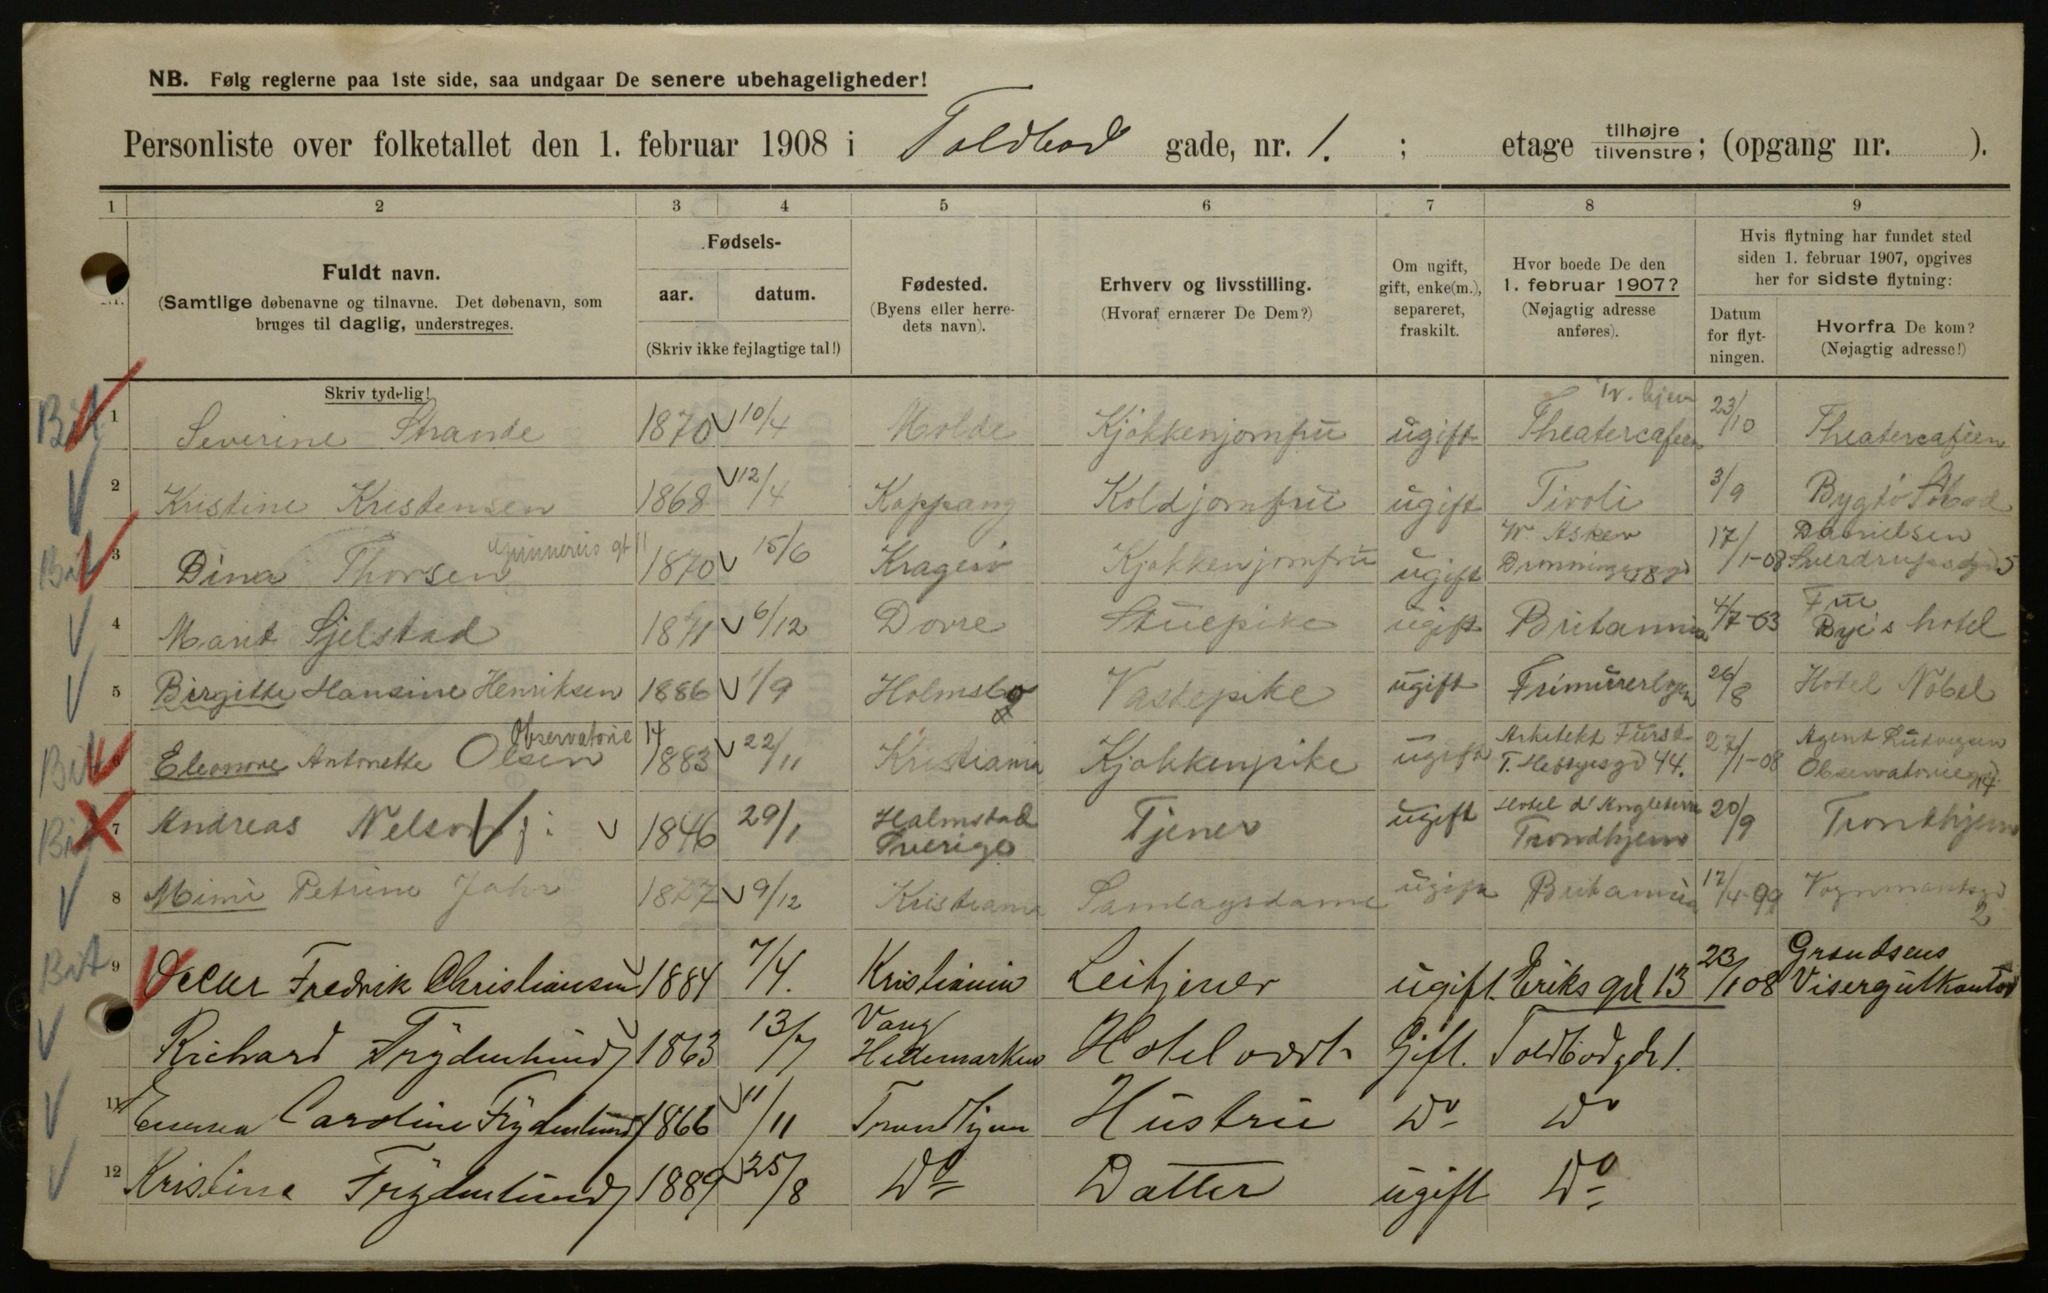 NB. Følg reglerne paa 1ste side, saa undgaar De senere ubehageligheder!
Personliste over folketallet den 1. februar 1908 i Toldbod gade, nr. 1. ; etage tilhøjre tilvenstre; (opgang nr. ).
1 2 3 4 5 6 7 8 9
Fuldt navn.
(Samtlige døbenavne og tilnavne. Det døbenavn, som
bruges til daglig, understreges.
Skriv tydelig!
Fødsels-
aar. datum.
(Skriv ikke fejlagtige tal!)
Fødested.
(Byens eller herre-
dets navn).
Erhverv og livsstilling.
(Hvoraf ernærer De Dem?)
Om ugift,
gift, enke(m.),
separeret,
fraskilt.
Hvor boede De den
1. februar 1907?
(Nøjagtig adresse
anføres).
Hvis flytning har fundet sted
siden 1. februar 1907, opgives
her for sidste flytning:
Datum
for flyt-
ningen.
Hvorfra De kom?
(Nøjagtig adresse!)
1 Severine Strande 1870 10/4 Molde Kjøkkenjomfru ugift Theatercafeen 23/10 Theatercafeen
2 Kristine Kristensen 1868 12/4 Koppang Koldjomfru ugift Tivoli 3/9 Bygdø Søbad
Gunnerus gt 11
3 Dina Thorsen 1870 15/6 Kragerø Kjøkkenjomfru ugift Dronningensgd 17/1-08 Danielsen
Sverdrupsgd 5
4 Marit Sjelstad 1871 6/12 Dovre Stuepike ugift Britannia 4/7-03 Frue
Bye's hotel
5 Birgitte Hansine Henriksen 1886 1/9 Holmsbo Vaskepike ugift Frimurerlogen 26/8 Hotel Nobel
Observatorie 14
6 Eleonore Antonette Olsen 1883 22/11 Kristiania Kjøkkenpike ugift Arkitekt Fürst
T. Heftyesgd 44. 27/1-08 Agent Ludvigsen
Observatoriegd 14.
7 Andreas Nelson 1846 29/1 Halmstad
Sverige Tjener ugift Hotel d'Angleterre
Trondhjem 20/9 Trondhjem
8 Mimi Petrine Jahr 1877 9/12 Kristiania Samlagsdame ugift Britannia 12/4-99 Vognmandsgd
2
9 Oscar Fredrik Christiansen 1884 7/4. Kristiania Leitjener ugift. Eriks gd 13 23/1 08 Grandsens
Visergutkontor
Richard Frydenlund 1863 13/7 Vang
Hedemarken Hotelvært Gift. Toldbodgd 1.
11 Emma Caroline Frydenlund 1866 11/11 Trondhjem Hustru Do Do
12 Kristina Frydenlund 1889 25/8 Do Datter ugift Do